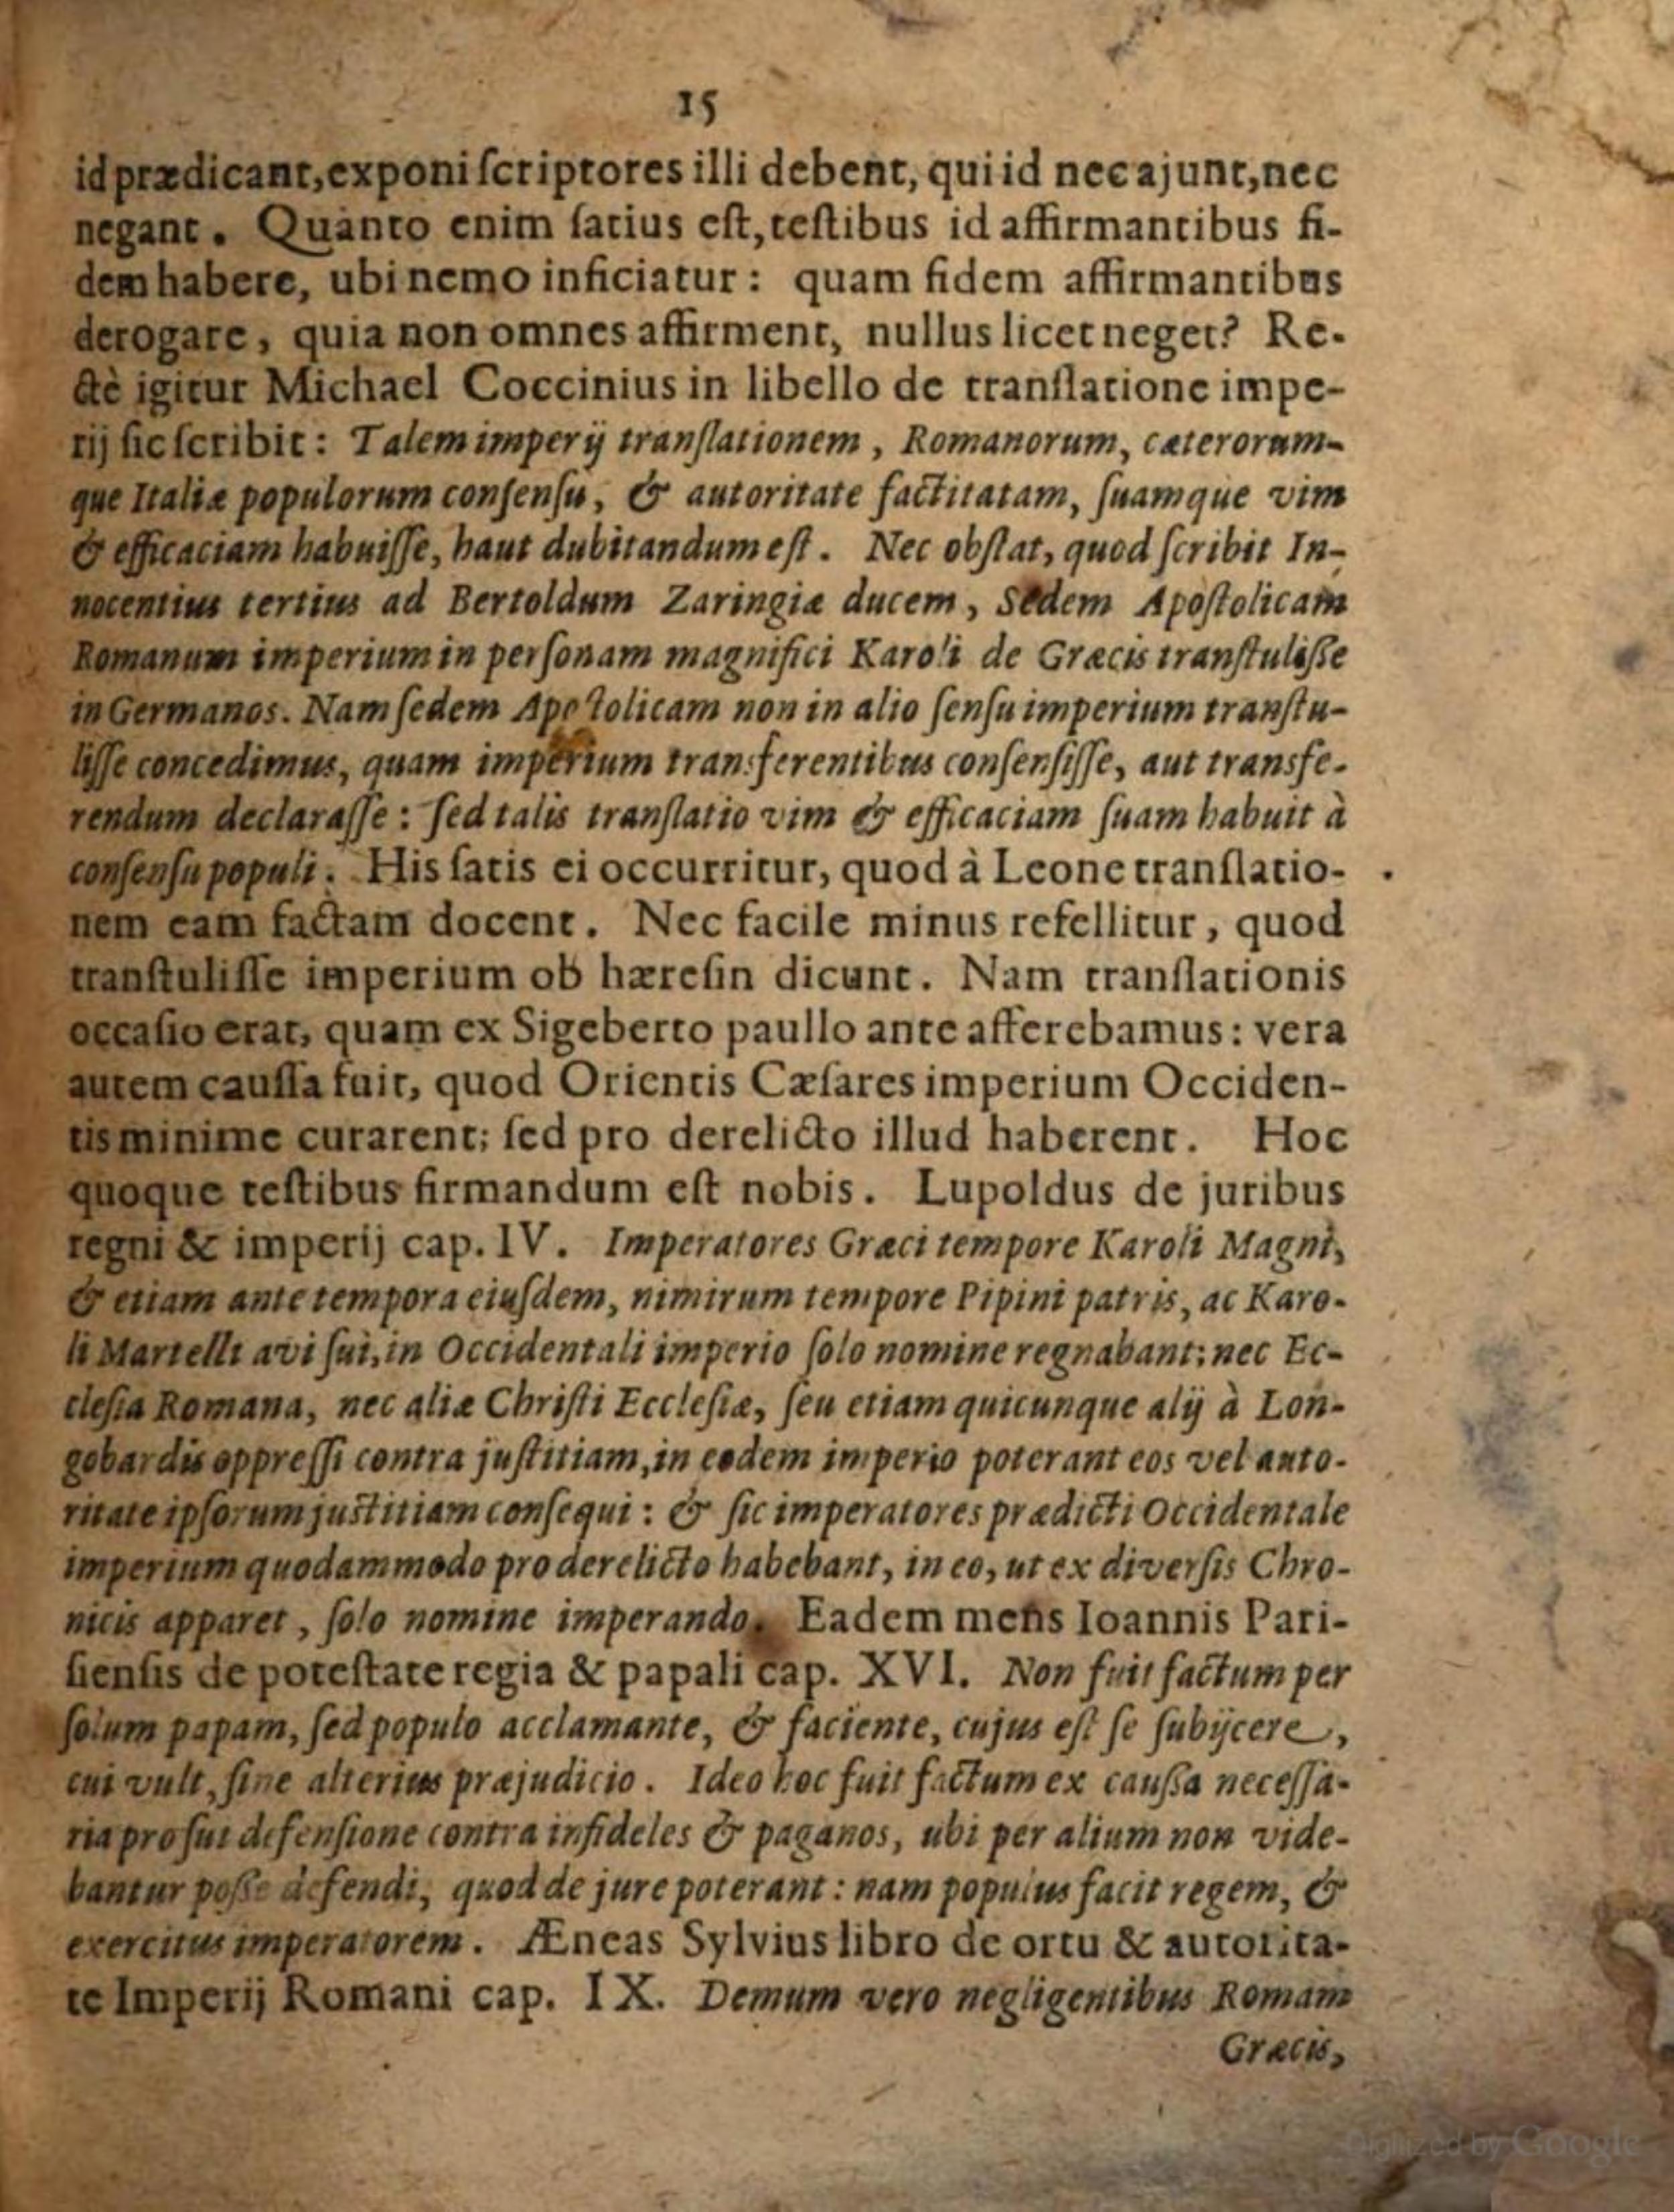 15
id prædicant, exponi ſcriptores illi debent, qui id nec ajunt, nec
negant. Quanto enim ſatius eſt, teſtibus id affirmantibus fi-
dem habere, ubi nemo inficiatur: quam fidem affirmantibus
derogare, quia non omnes affirment, nullus licet neget? Re-
ctè igitur Michael Coccinius in libello de tranſlatione impe-
rij ſic ſcribit: Talem imperij tranſlationem, Romanorum, cæterorum-
que Italiæ populorum conſenſu, & autoritate factitatam, ſuamque vim
& efficaciam habuiſſe, haut dubitandum eſt. Nec obſtat, quod ſcribit In-
nocentius tertius ad Bertoldum Zaringiæ ducem, Sedem Apoſtolicam
Romanum imperium in perſonam magnifici Karoli de Græcis tranſtuliſſe
in Germanos. Nam ſedem Apoſtolicam non in alio ſenſu imperium tranſtu-
liſſe concedimus, quam imperium transferentibus conſenſiſſe, aut transfe-
rendum declaraſſe: ſed talis tranſlatio vim & efficaciam ſuam habuit à
conſenſu populi. His ſatis ei occurritur, quod à Leone tranſlatio-
nem eam factam docent. Nec facile minus refellitur, quod
tranſtuliſſe imperium ob hæreſin dicunt. Nam tranſlationis
occaſio erat, quam ex Sigeberto paullo ante afferebamus: vera
autem cauſſa fuit, quod Orientis Cæſares imperium Occiden-
tis minime curarent; ſed pro derelicto illud haberent. Hoc
quoque teſtibus firmandum eſt nobis. Lupoldus de juribus
regni & imperij cap. IV. Imperatores Græci tempore Karoli Magni,
& etiam ante tempora eiuſdem, nimirum tempore Pipini patris, ac Karo-
li Martelli avi ſui, in Occidentali imperio ſolo nomine regnabant; nec Ec-
cleſia Romana, nec aliæ Chriſti Eccleſiæ, ſeu etiam quicunque alij à Lon-
gobardis oppreſſi contra juſtitiam, in eodem imperio poterant eos vel auto-
ritate ipſorum juſtitiam conſequi: & ſic imperatores prædicti Occidentale
imperium quodammodo pro derelicto habebant, in eo, ut ex diverſis Chro-
nicis apparet, ſolo nomine imperando. Eadem mens Ioannis Pari-
ſienſis de poteſtate regia & papali cap. XVI. Non fuit factum per
ſolum papam, ſed populo acclamante, & faciente, cujus eſt ſe ſubijcere,
cui vult, ſine alterius præjudicio. Ideo hoc fuit factum ex cauſſa neceſſa-
ria pro ſui defenſione contra infideles & paganos, ubi per alium non vide-
bantur poſſe defendi, quod de jure poterant: nam populus facit regem, &
exercitus imperatorem. Æneas Sylvius libro de ortu & autorita-
te Imperij Romani cap. IX. Demum vero negligentibus Romam
Græcis,
Digitized by Google